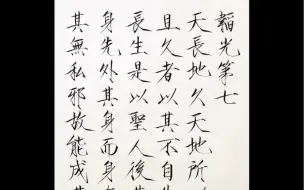 韜光第七
天長地久天地所
且久者以其不自生
長生是以聖人後其
身先外其身而身
其無私邪故能成其